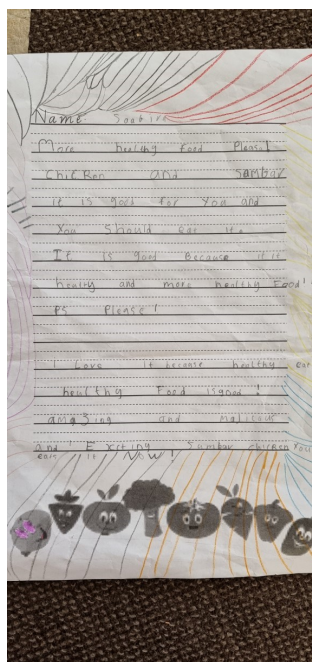 Name
More healthy food Please!
Chicken and Sambar
it is good for you and
You should eat it.
It is good Because it it
healthy and more healthy Food!
PS Please!
I Love it because healthy
healthy Food isgood!
ama3ing and malicous
and! Exciting Sumbar chicken You
eat it NOW!